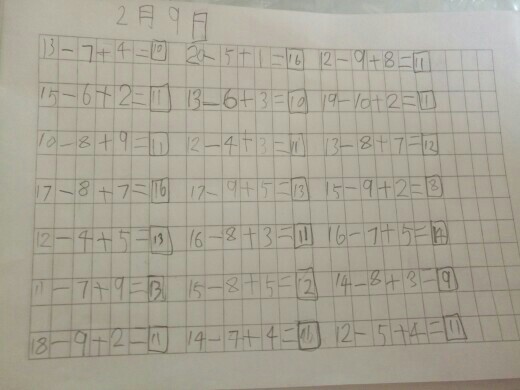 2月9日
13-7+4=10 20-5+1=16 12-9+8=11
15-6+2=11 13-6+3=10 19-10+2=11
10-8+9=11 12-4+3=11 13-8+7=12
17-8+7=16 17-9+5=13 15-9+2=8
12-4+5=13 16-8+3=11 16-7+5=14
11-7+9=13 15-8+5=12 14-8+3=9
18-9+2=11 14-7+4=11 12-5+4=11